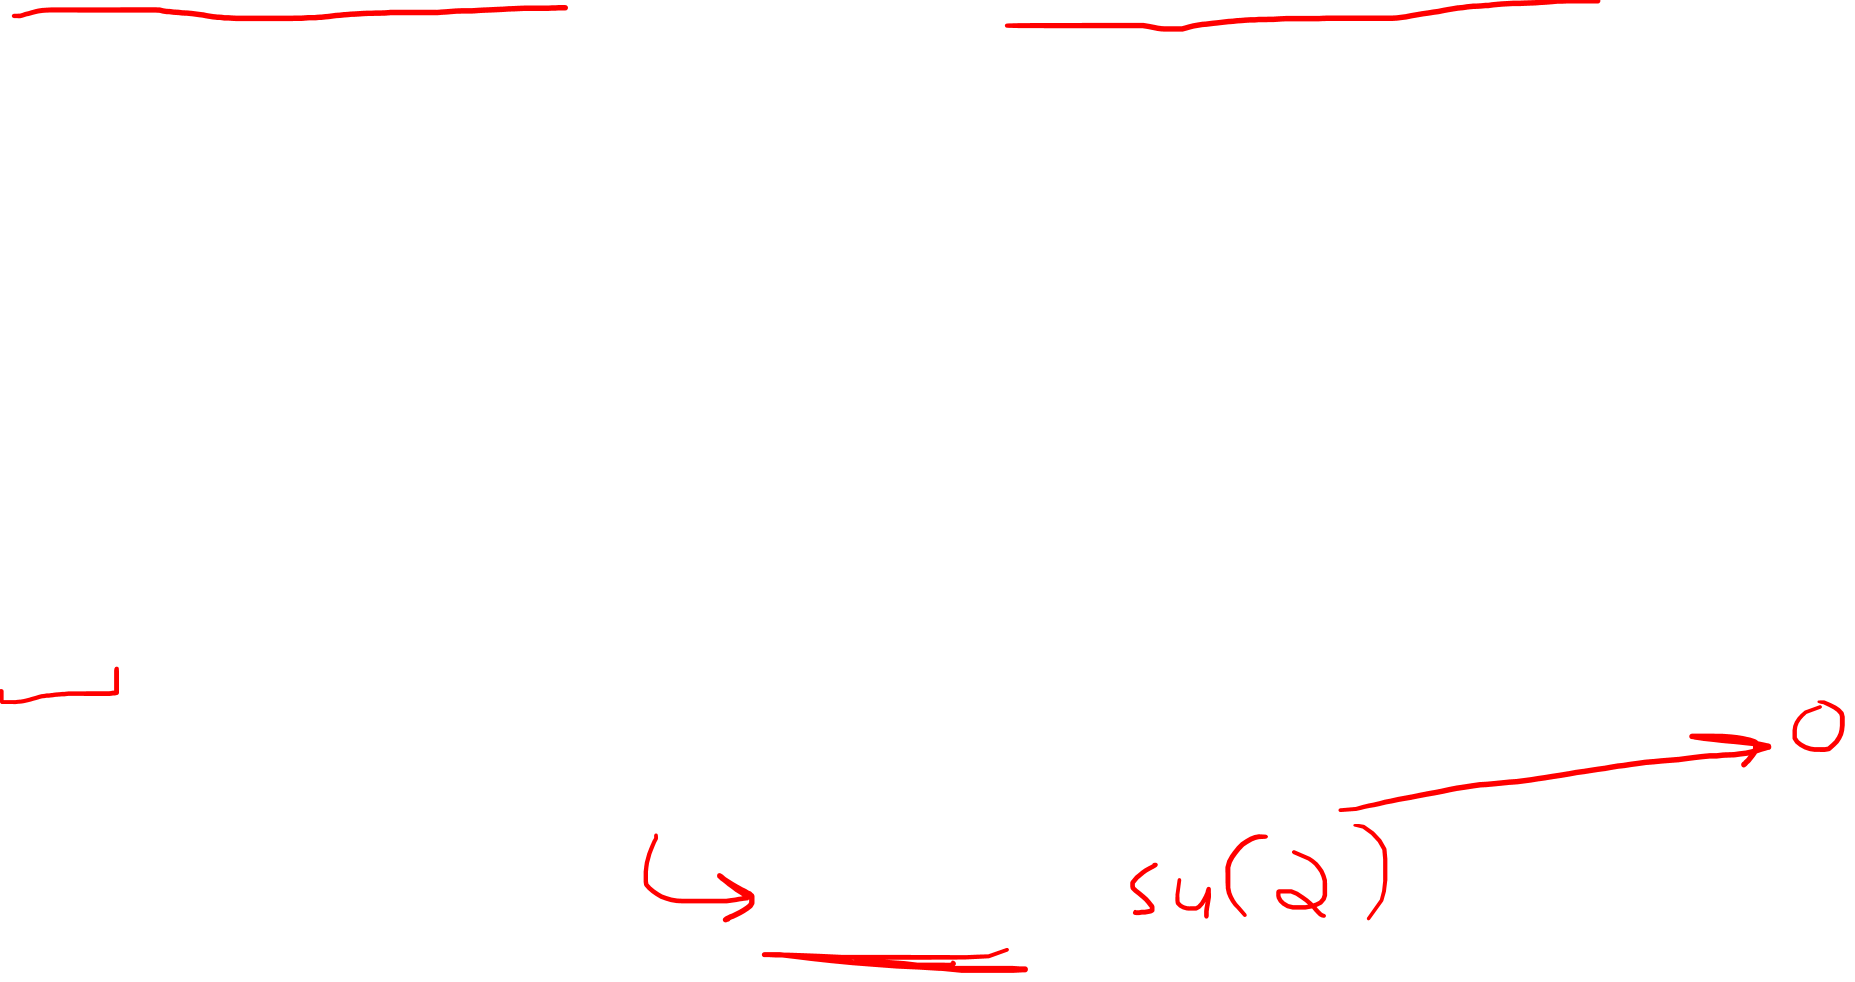 su(2) → 0